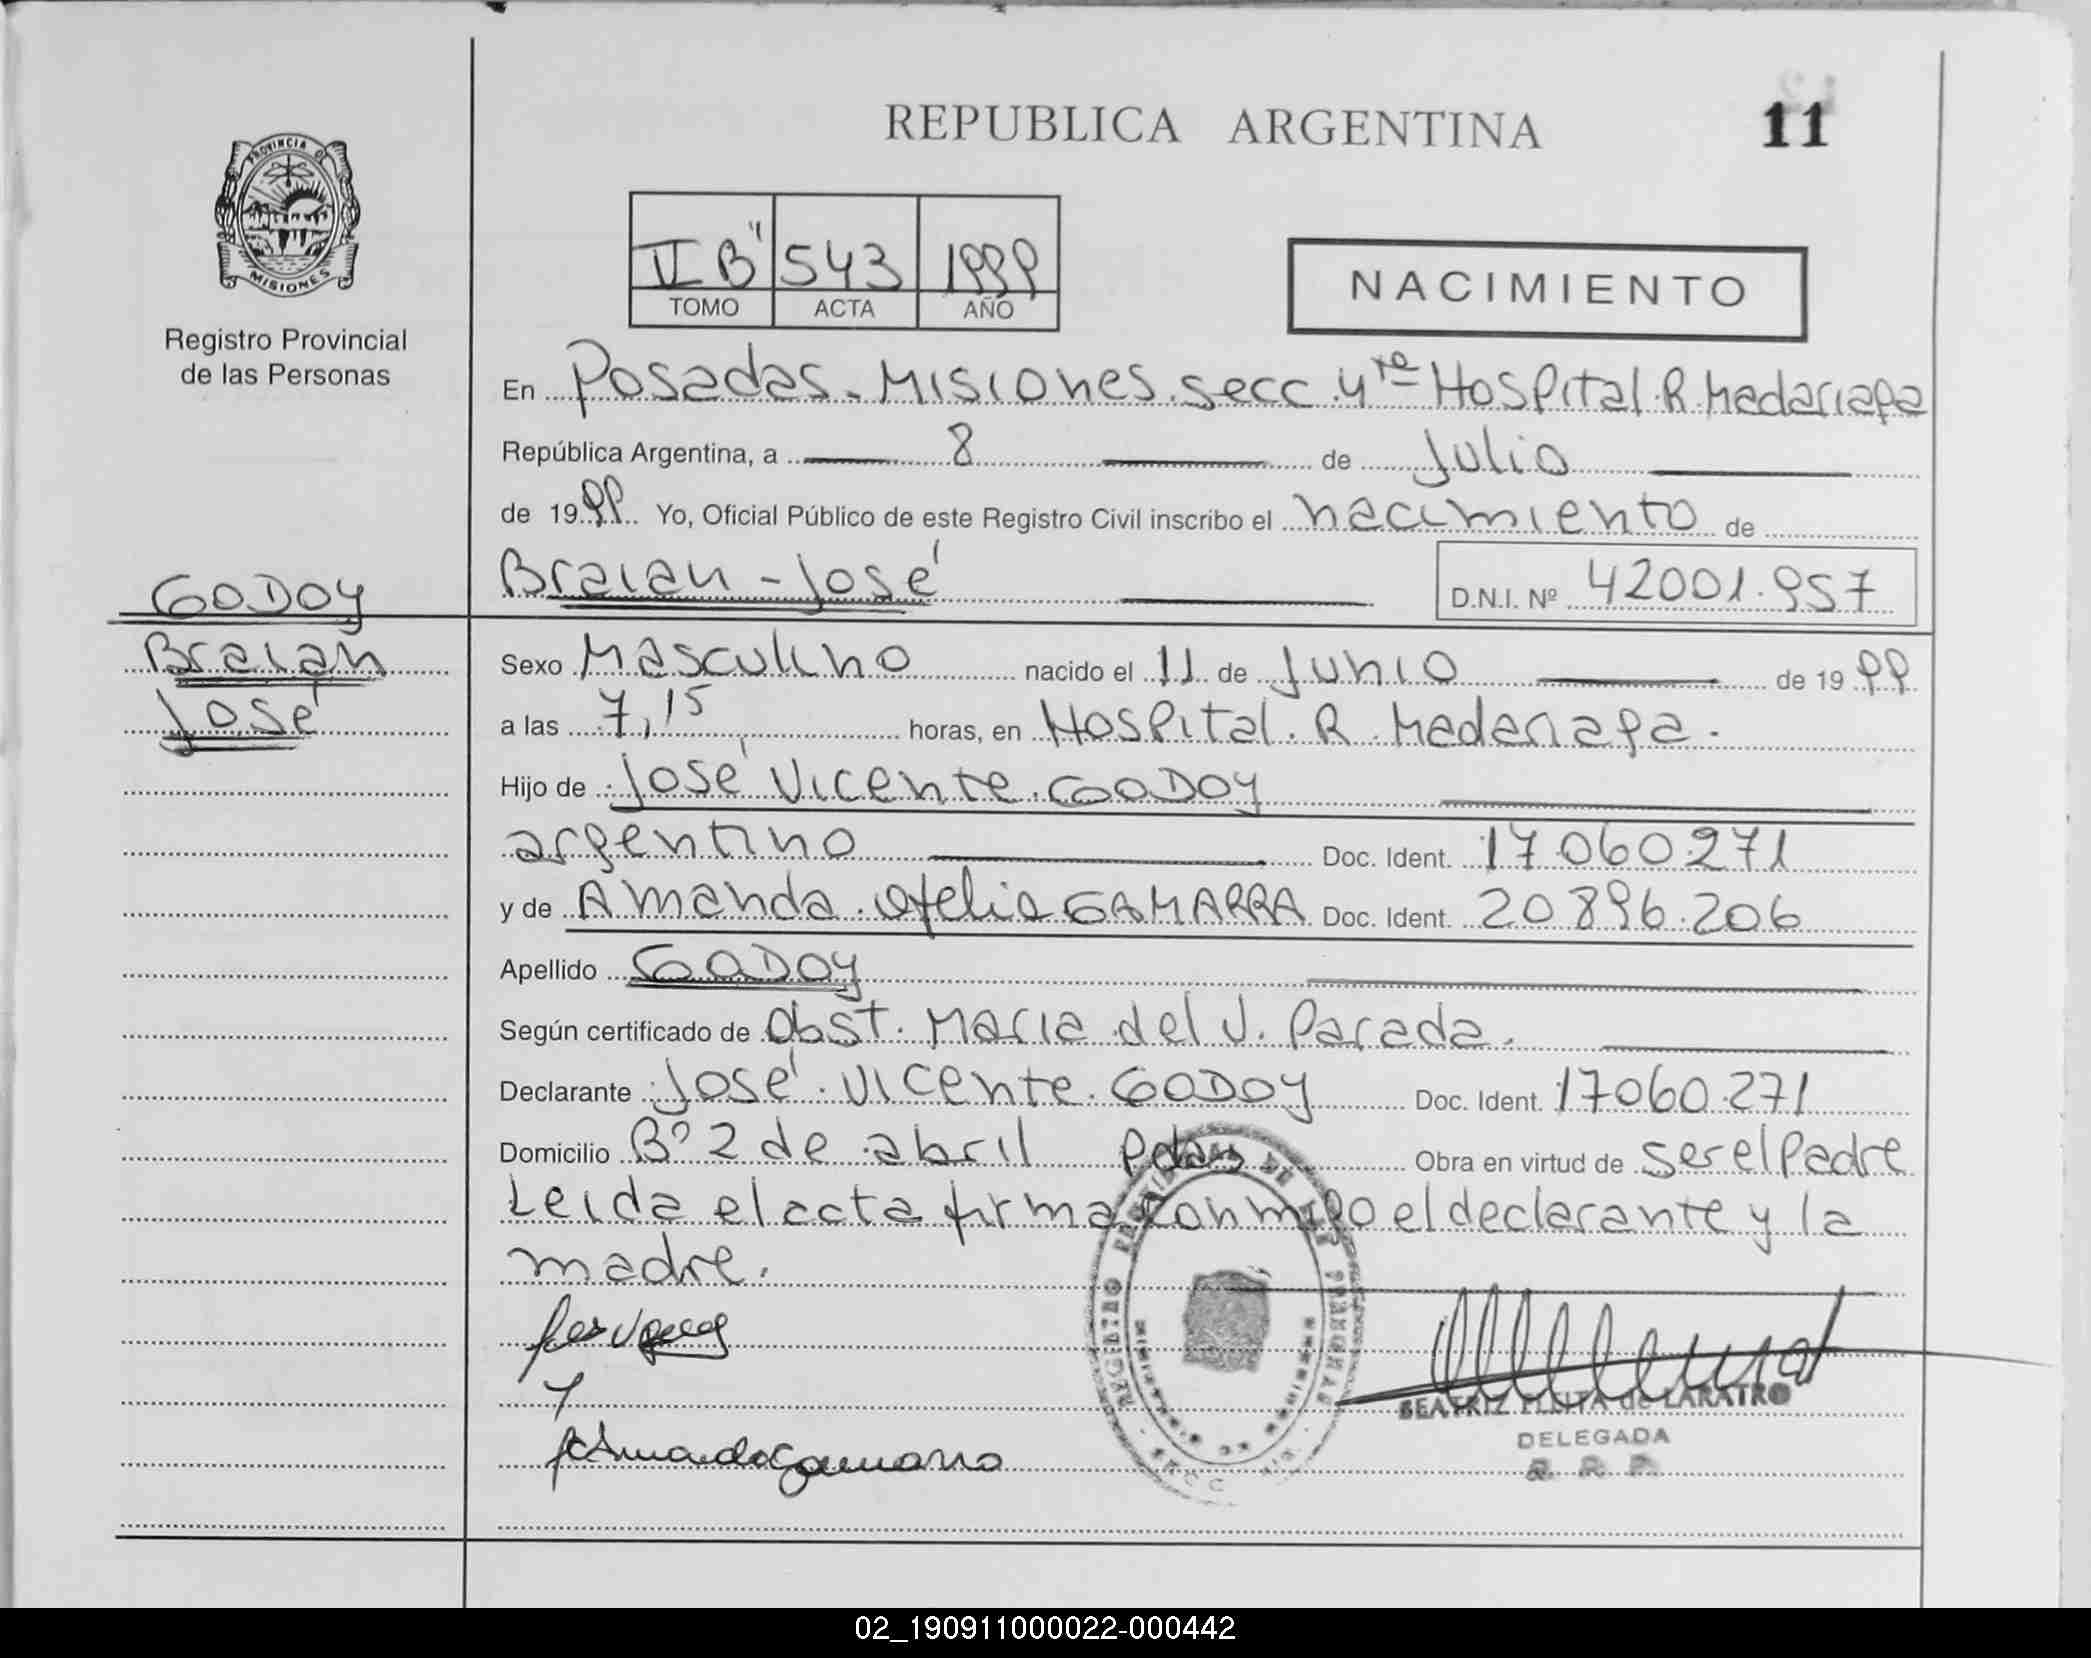 REPUBLICA ARGENTINA
11
PROVINCIA DE
MISIONES
Registro Provincial
de las Personas
II B" 543 1999
TOMO ACTA AÑO
NACIMIENTO
En Posadas. Misiones. secc. 4ta Hospital. R. Madariaga
República Argentina, a 8 de Julio
de 1999 Yo, Oficial Público de este Registro Civil inscribo el nacimiento de
Braian - José
D.N.I. Nº 42001.957
GODOY
Braian
José
Sexo Masculino nacido el 11 de Junio de 1999
a las 7,15 horas, en Hospital. R. Madariaga.
Hijo de José Vicente. GODOY
argentino Doc. Ident. 17.060.271
y de Amanda. Ofelia GAMARRA Doc. Ident. 20.896.206
Apellido GODOY
Según certificado de Obst. Maria del V. Parada.
Declarante José. Vicente. GODOY Doc. Ident. 17060.271
Domicilio Bº 2 de abril Pdas Obra en virtud de ser el Padre
Leida el acta firma conmigo el declarante y la
madre.
y
REGISTRO PROVINCIAL DE LAS PERSONAS
BEATRIZ de LARATRO
DELEGADA
R. R. P.
02_190911000022-000442